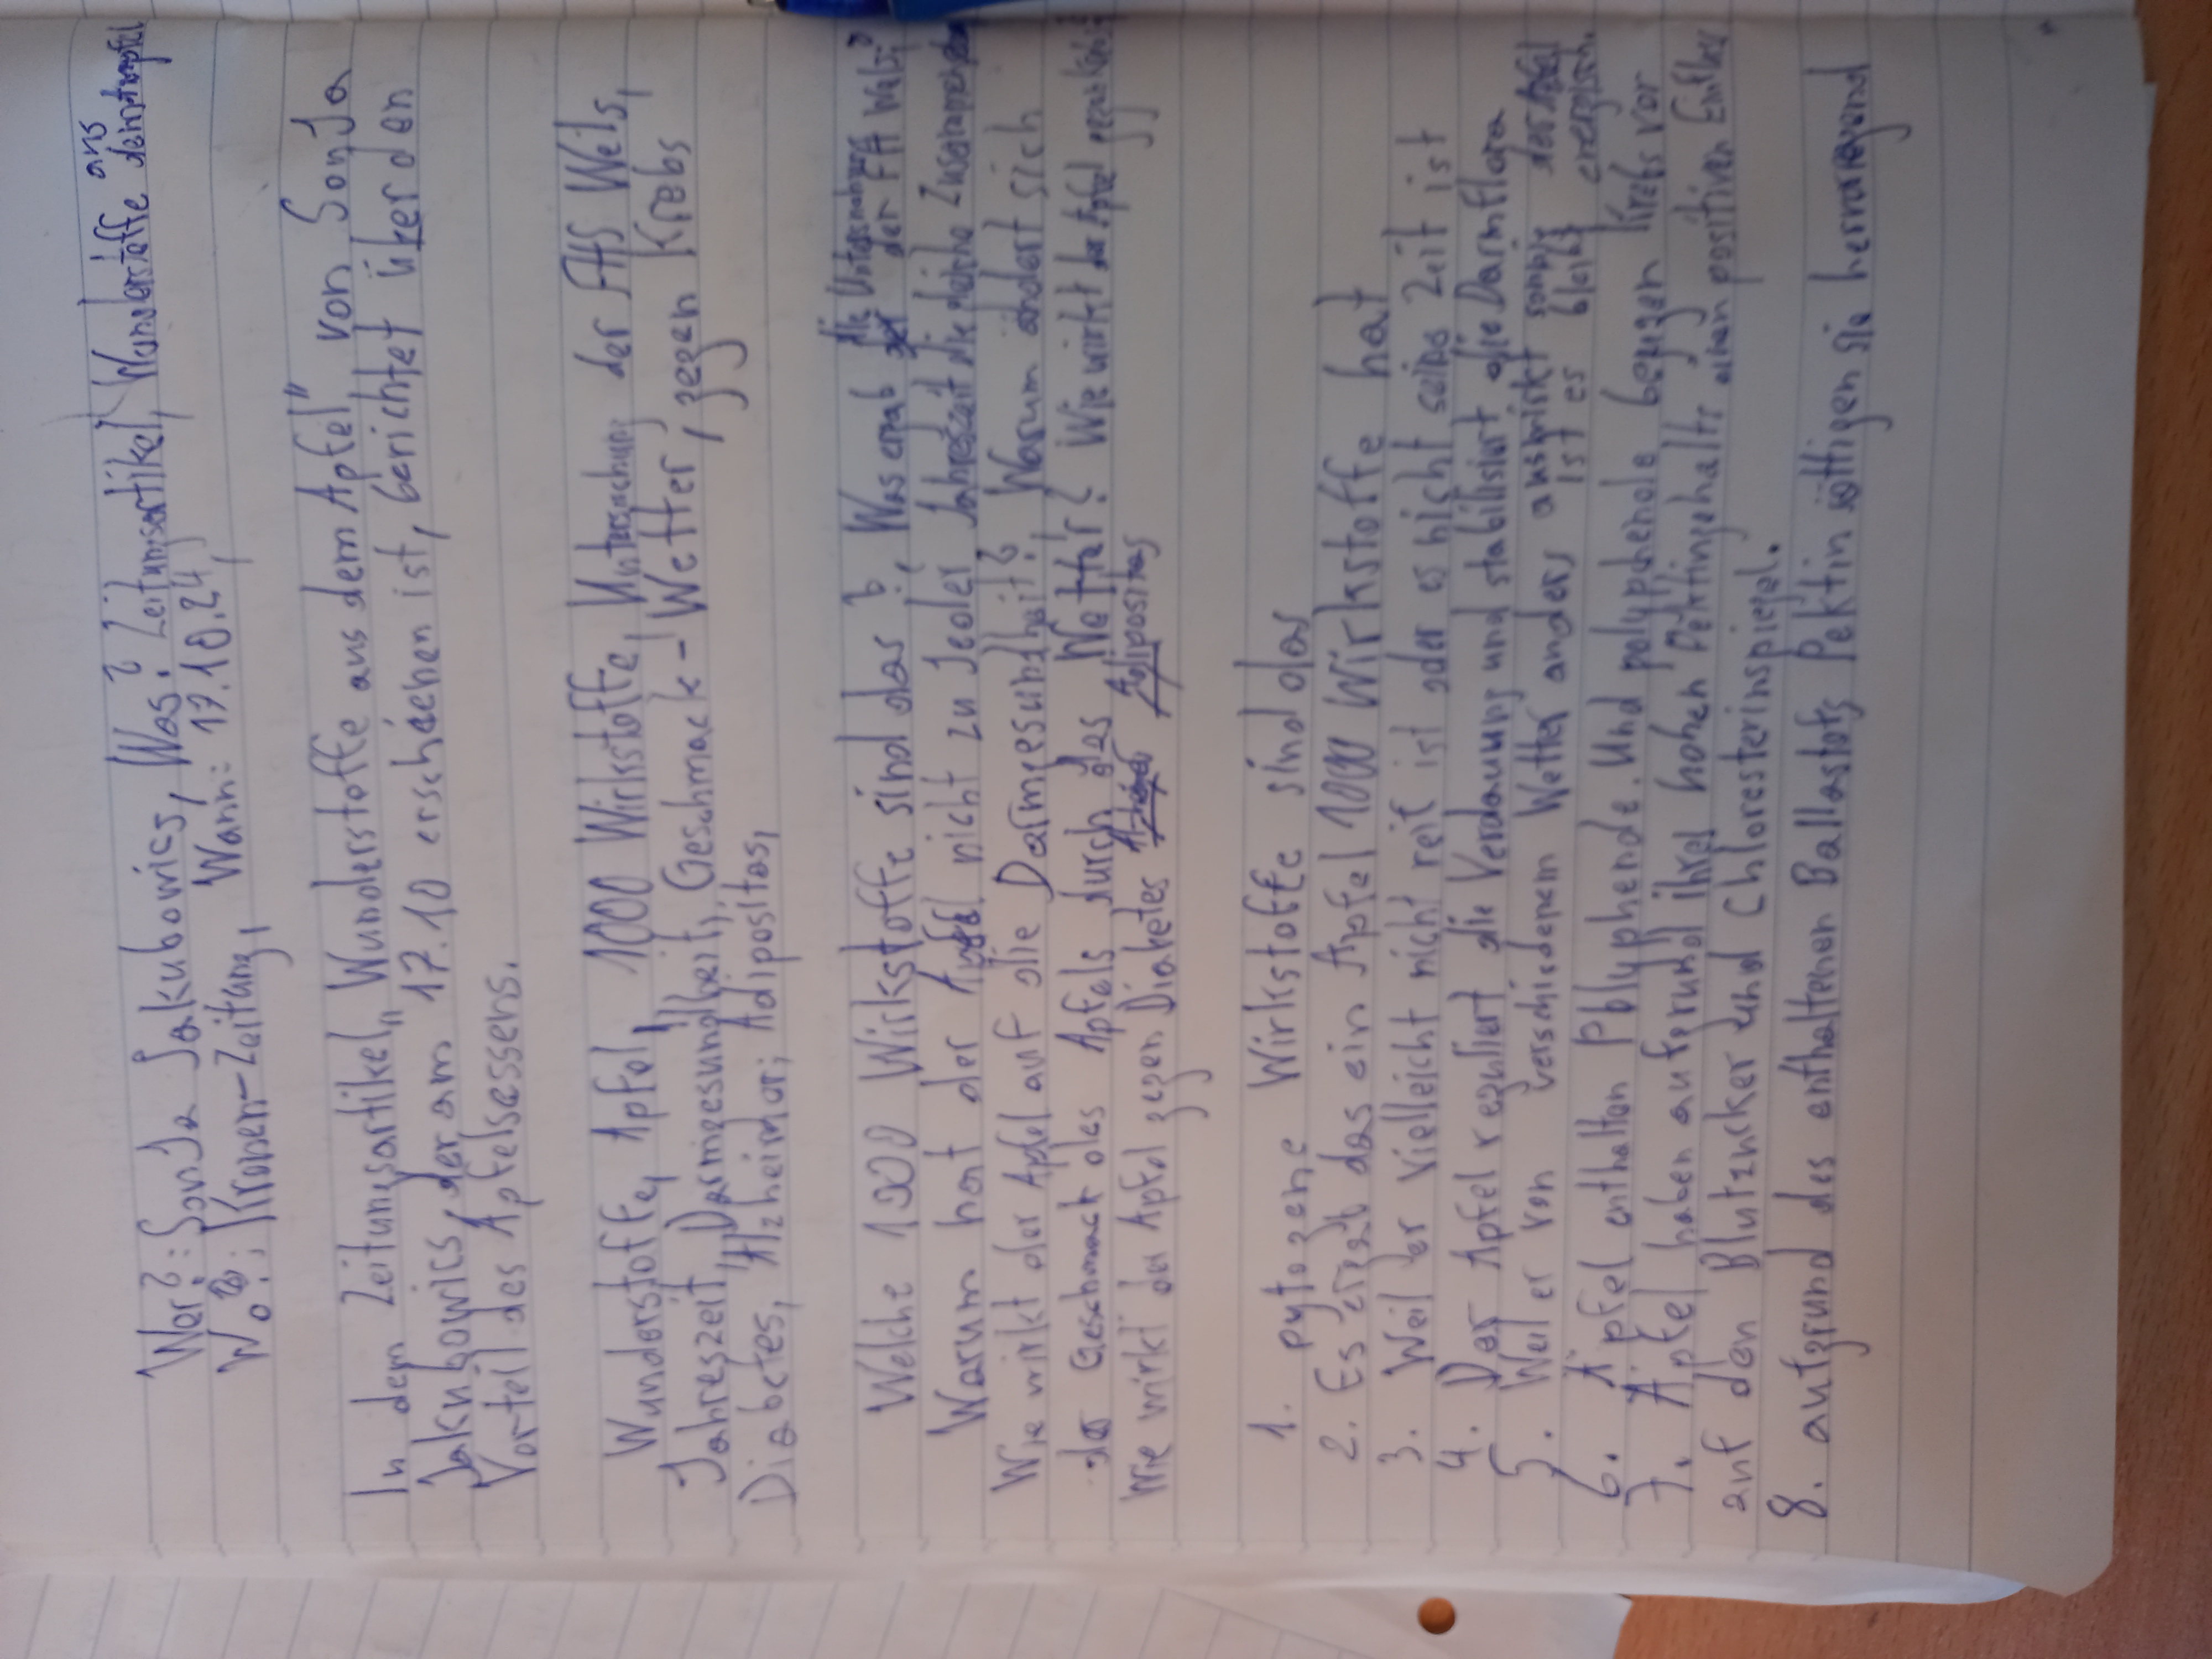 Wer?: Sonja Jakubowics, Was? Zeitungsartikel, Wunderstoffe aus dem Apfel
Wo?: Kronen-Zeitung, Wann: 17.10.24,
In dem Zeitungsartikel „Wunderstoffe aus dem Apfel" von Sonja
Jakubowics, der am 17.10 erschienen ist, berichtet über den
Vorteil des Apfelsessens.
Wunderstoffe, Apfel, 1000 Wirkstoffe, Untersuchung der FHS Wels,
Jahreszeit, Darmgesundheit, Geschmack-Wetter, gegen Krebs
Diabetes, Alzheimer; Adipositas,
Welche 1000 Wirkstoffe sind das?, Was ergab die Untersuchung der FH Wels?
Warum hat der Apfel nicht zu Jeder Jahreszeit die gleiche
Wie wirkt der Apfel auf die Darmgesundheit? Warum ändert sich
der Geschmack des Apfels durch das Wetter? Wie wirkt der Apfel gegen
Wie wirkt der Apfel gegen Diabetes Adipositas
1. pytogene Wirkstoffe sind das
2. Es ergab das ein Apfel 1000 Wirkstoffe hat
3. Weil er vielleicht nicht reif ist oder es nicht seine Zeit ist
4. Der Apfel reguliert die Verdauung und stabilisiert die Darmflora
5. Weil er von verschiedenem Wetter anders ist es bleibt
6. Äpfel enthalten Polyphende. Und polyphenole beugen Krebs vor
7. Äpfel haben aufgrund ihrer hohen Pektingehalts einen positiven Einfluss
auf den Blutzucker und Chloresterinspiegel.
8. aufgrund des enthaltenen Ballastofs Pektin sättigen sie hervorragend